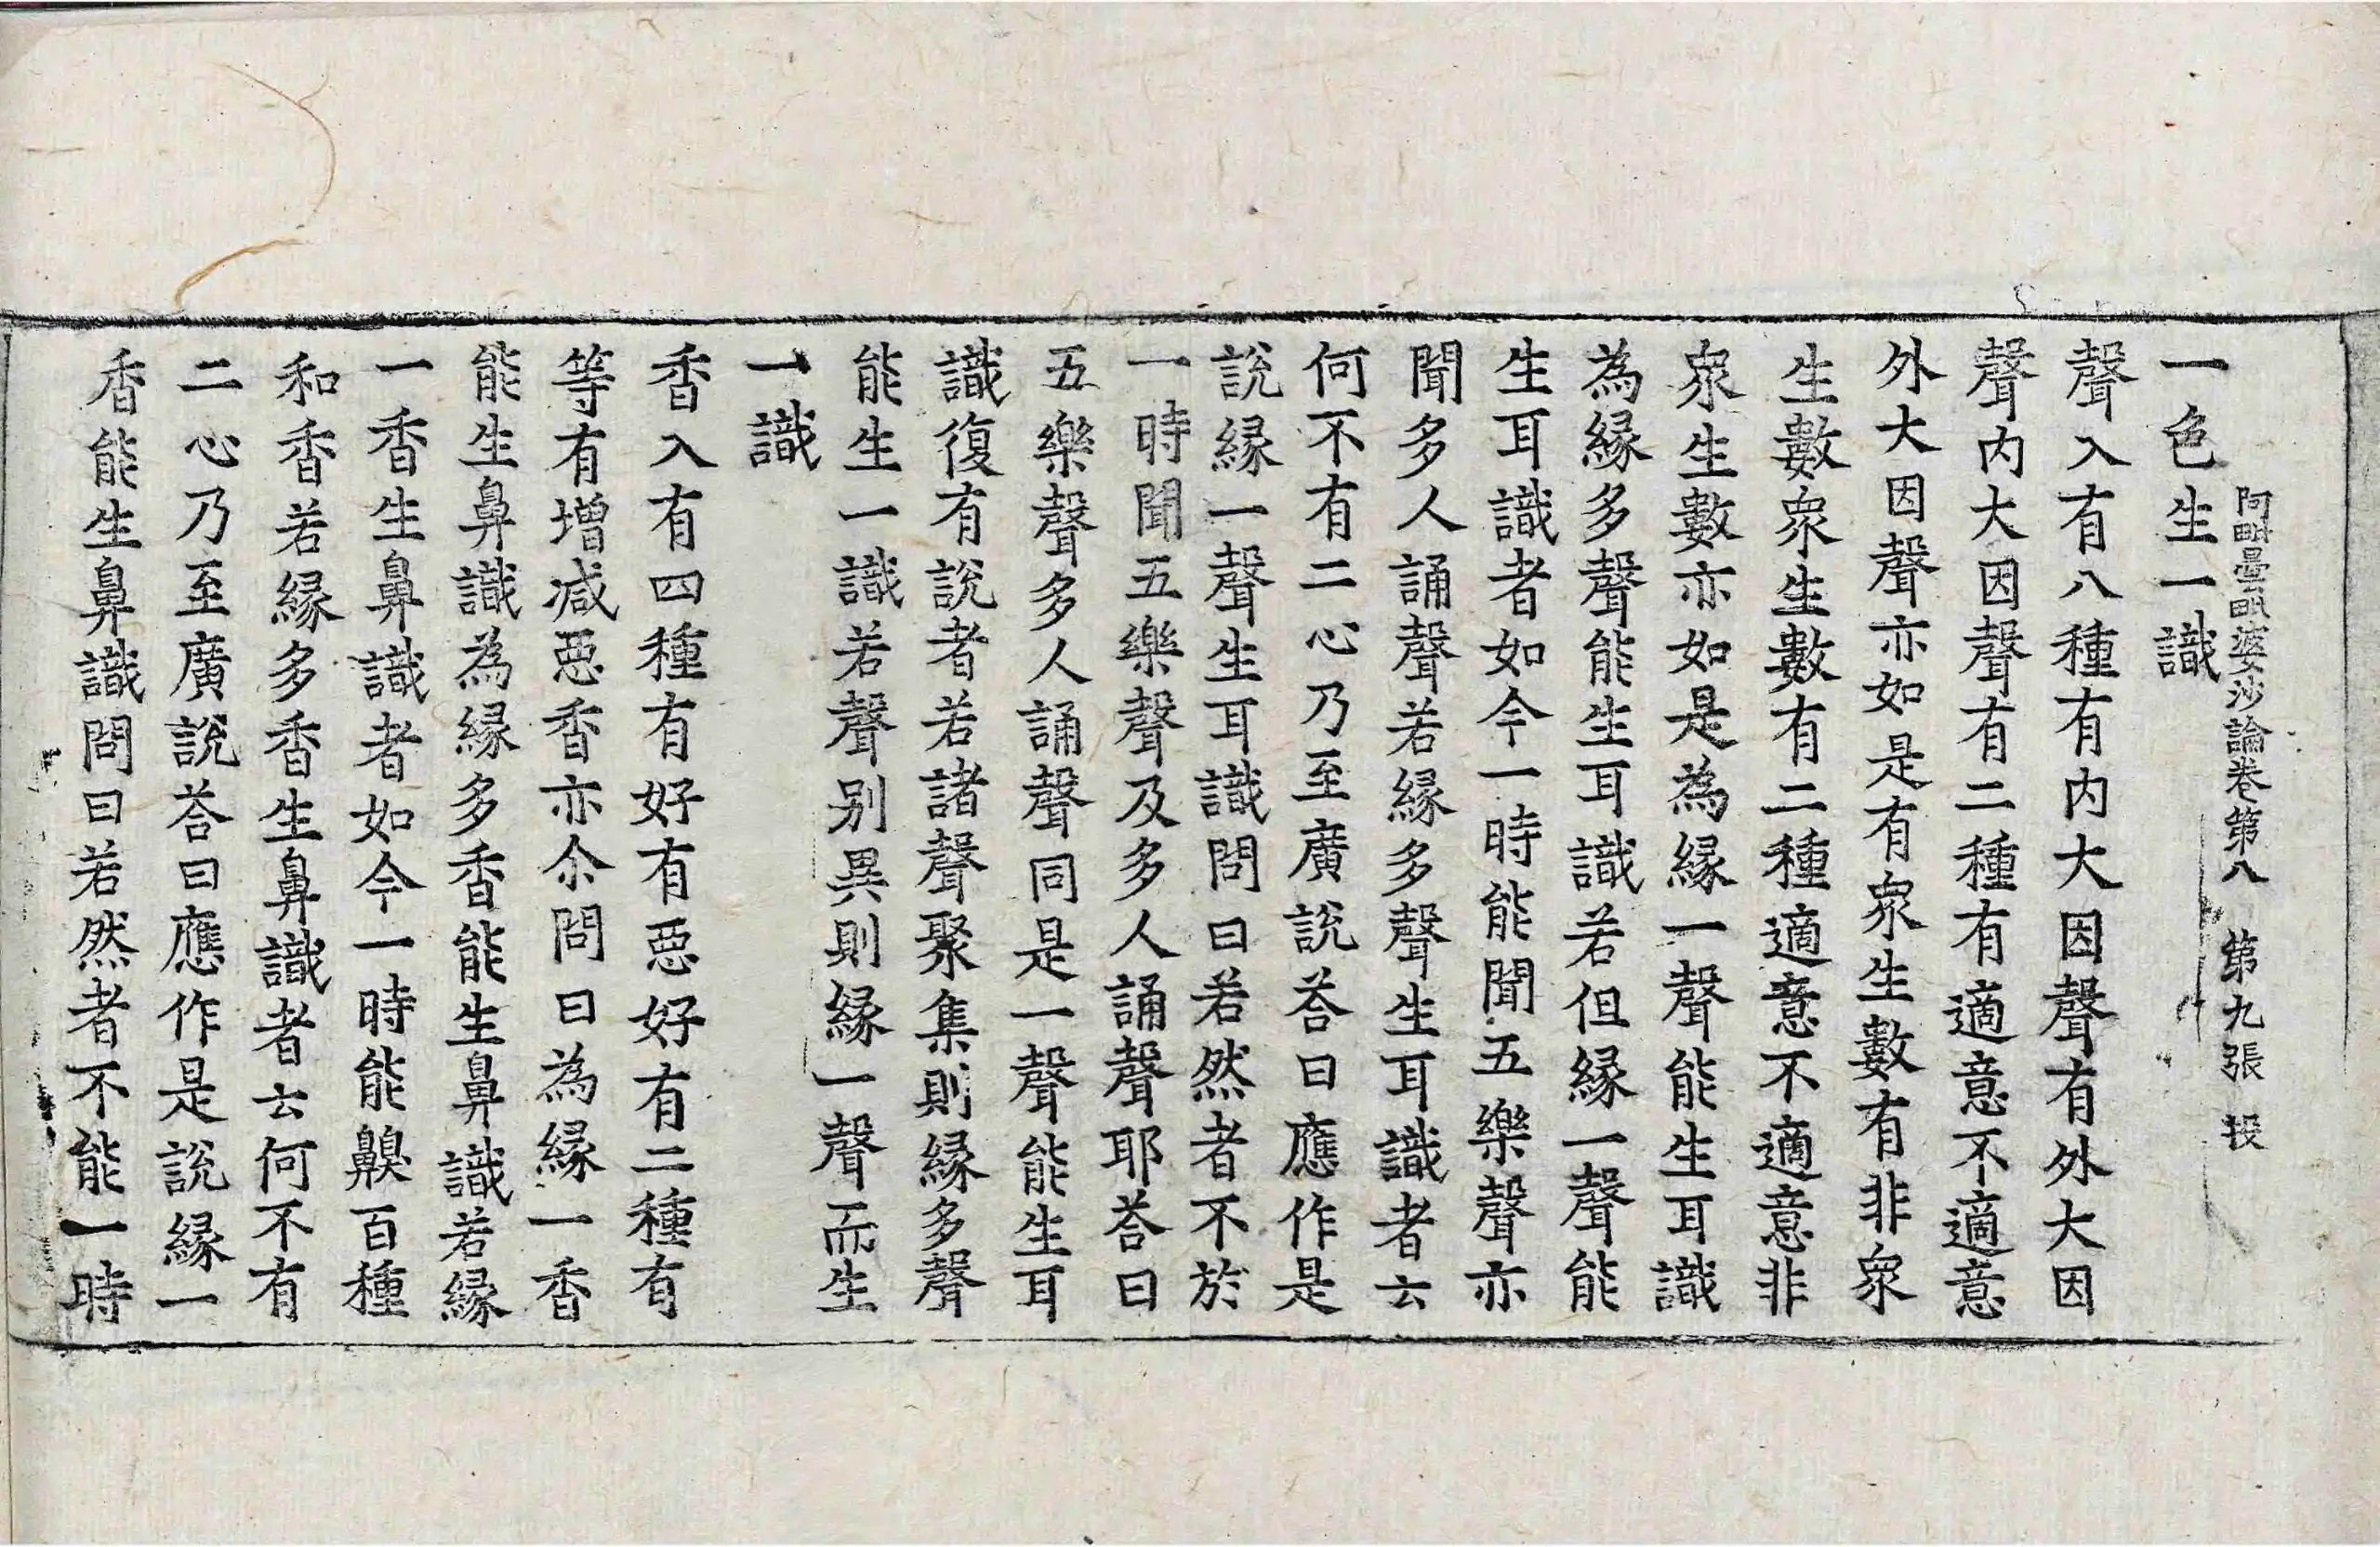 阿毗曇毗婆沙論卷第八 第九張 投
一色生一識
聲入有八種有内大因聲有外大因
聲内大因聲有二種有適意不適意
外大因聲亦如是有衆生數有非衆
生數衆生數有二種適意不適意非
衆生數亦如是為緣一聲能生耳識
為緣多聲能生耳識若但緣一聲能
生耳識者如今一時能聞五樂聲亦
聞多人誦聲若緣多聲生耳識者云
何不有二心乃至廣說荅曰應作是
說緣一聲生耳識問曰若然者不於
一時聞五樂聲及多人誦聲耶荅曰
五樂聲多人誦聲同是一聲能生耳
識復有說者若諸聲聚集則緣多聲
能生一識若聲别異則緣一聲而生
一識
香入有四種有好有惡好有二種有
等有增減惡香亦尒問曰為緣一香
能生鼻識為緣多香能生鼻識若緣
一香生鼻識者如今一時能齅百種
和香若緣多香生鼻識者云何不有
二心乃至廣說荅曰應作是說緣一
香能生鼻識問曰若然者不能一時